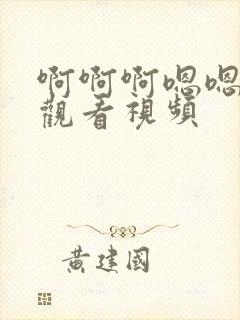 啊啊啊嗯嗯
觀看視頻
黃建國